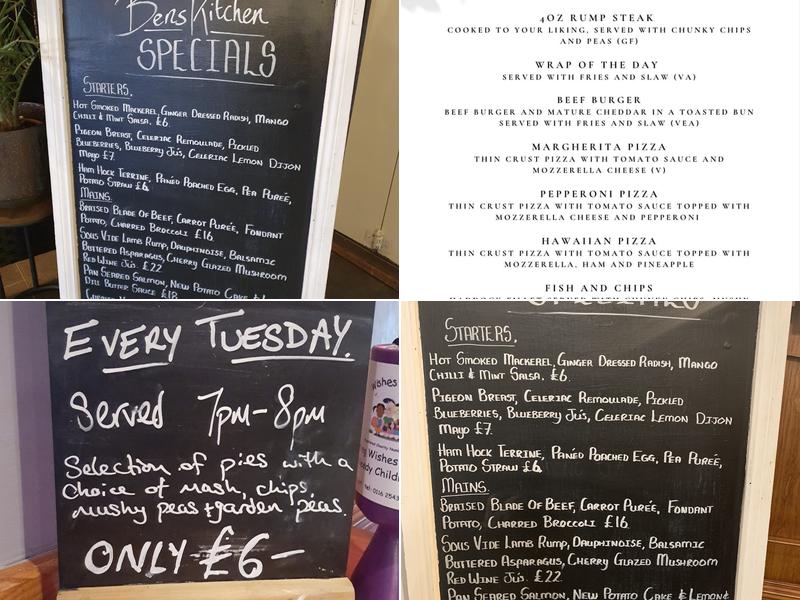 Bens Kitchen
SPECIALS
STARTERS.
HOT SMOKED MACKEREL, GINGER DRESSED RADISH, MANGO
CHILLI & MINT SALSA. £6
PIGEON BREAST, CELERIAC REMOULADE, PICKLED
BLUEBERRIES, BLUEBERRY JUS, CELERIAC LEMON DIJON
MAYO £7
HAM HOCK TERRINE, PANÉED POACHED EGG, PEA PUREÉ,
POTATO STRAW £6
MAINS.
BRAISED BLADE OF BEEF, CARROT PUREÉ, FONDANT
POTATO, CHARRED BROCCOLI £16
SOUS VIDE LAMB RUMP, DAUPHINOISE, BALSAMIC
BUTTERED ASPARAGUS, CHERRY GLAZED MUSHROOM
RED WINE JUS. £22
PAN SEARED SALMON, NEW POTATO CAKE &
DILL BUTTER SAUCE £18
4OZ RUMP STEAK
COOKED TO YOUR LIKING, SERVED WITH CHUNKY CHIPS
AND PEAS (GF)
WRAP OF THE DAY
SERVED WITH FRIES AND SLAW (VA)
BEEF BURGER
BEEF BURGER AND MATURE CHEDDAR IN A TOASTED BUN
SERVED WITH FRIES AND SLAW (VEA)
MARGHERITA PIZZA
THIN CRUST PIZZA WITH TOMATO SAUCE AND
MOZZERELLA CHEESE (V)
PEPPERONI PIZZA
THIN CRUST PIZZA WITH TOMATO SAUCE TOPPED WITH
MOZZERELLA CHEESE AND PEPPERONI
HAWAIIAN PIZZA
THIN CRUST PIZZA WITH TOMATO SAUCE TOPPED WITH
MOZZERELLA, HAM AND PINEAPPLE
FISH AND CHIPS
EVERY TUESDAY.
Served 7pm-8pm
Selection of pies with a
choice of mash, chips,
mushy peas + garden peas.
ONLY £6-
Wishes
Wishes
Childr
tel: 0116 2543
STARTERS.
HOT SMOKED MACKEREL, GINGER DRESSED RADISH, MANGO
CHILLI & MINT SALSA. £6.
PIGEON BREAST, CELERIAC REMOULADE, PICKLED
BLUEBERRIES, BLUEBERRY JUS, CELERIAC LEMON DIJON
MAYO £7.
HAM HOCK TERRINE, PANÉED POACHED EGG, PEA PUREÉ,
POTATO STRAW £6
MAINS.
BRAISED BLADE OF BEEF, CARROT PUREÉ, FONDANT
POTATO, CHARRED BROCCOLI £16.
SOUS VIDE LAMB RUMP, DAUPHINOISE, BALSAMIC
BUTTERED ASPARAGUS, CHERRY GLAZED MUSHROOM
RED WINE JUS. £22.
PAN SEARED SALMON, NEW POTATO CAKE & LEMON &